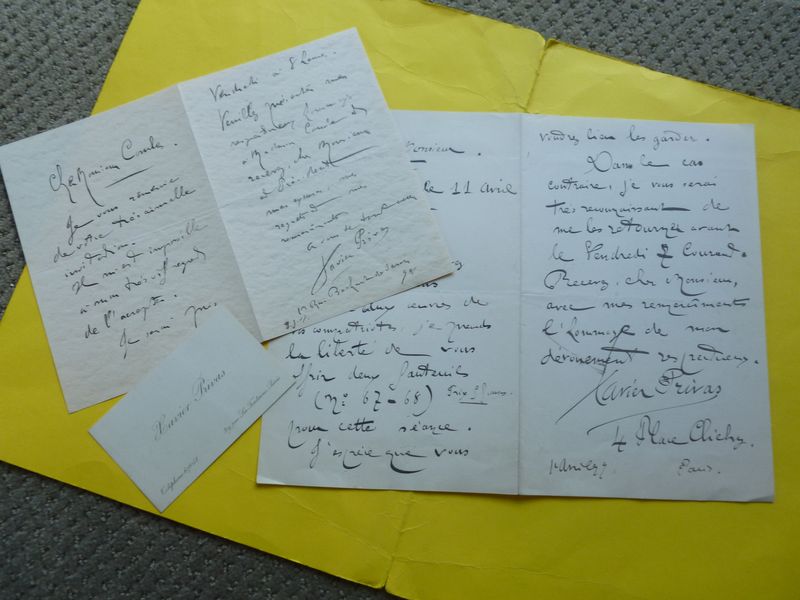 Cher Monsieur Combes
Je vous remercie
de votre très aimable
invitation.
Il m'est impossible
à mon très vif regret
de l'accepter.
Je serai
Vendredi à 8 heures.
Veuillez présenter mes
respectueux hommages
à Madame Combes &
recevez, cher Monsieur
et Président
mes regrets
Xavier Privas
Xavier Privas
Téléphone
Monsieur.
le 11 avril
aux œuvres de
vos compatriotes, je prends
la liberté de vous
offrir deux fauteuils
(Nos 67 - 68)
pour cette séance.
J'espère que vous
voudrez bien les garder.
Dans le cas
contraire, je vous serai
très reconnaissant de
me les retourner avant
le Vendredi 7 Courant.
Recevez, cher Monsieur,
avec mes remerciements
l'hommage de mon
dévouement respectueux.
Xavier Privas
4 Place Clichy
Paris.